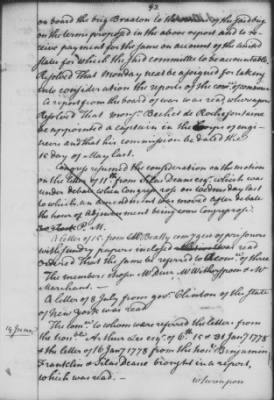 92
on board the brig Braxton to the owners of the said brig
on the terms proposed in the above report and to re
ceive payment for the same on account of the united
states for which the said committee to be accountable
Resolved That Monday next be assigned for taking
into consideration the reports of the com^ee of commerce
A report from the board of war was read whereupon
Resolved That mons^r Bechet de Rochefontaine
be appointed a captain in the Corps of engi
neers and that his commission be dated the
15 day of May last.
Congress resumed the consideration on the motion
on the letter of 11 from Silas Deane esq^r. which was
under debate when Congress rose on Wednesday last
to which an amendment was moved after debate
the hour of adjournment being come Congress rose.
P. M.
A letter of 15 from Beatty com^y gen of prisoners
with sundry papers enclosed was read
Ordered That the same be referred to a com^ee of three
The members chosen M^r Duer M^r Witherspoon & M^r
Marchant. —
A letter of 8 July from gov^r. Clinton of the State
of New York was read
The com^ee to whom were referred the letters from
the hon^ble Arthur Lee esq^r of 6th. 15 & 31 Jan^y 1778
& the letter of 16 Jan^y 1778 from the hon^ble Benjamin
Franklin & Silas Deane brought in a report,
which was read. —
Whereupon